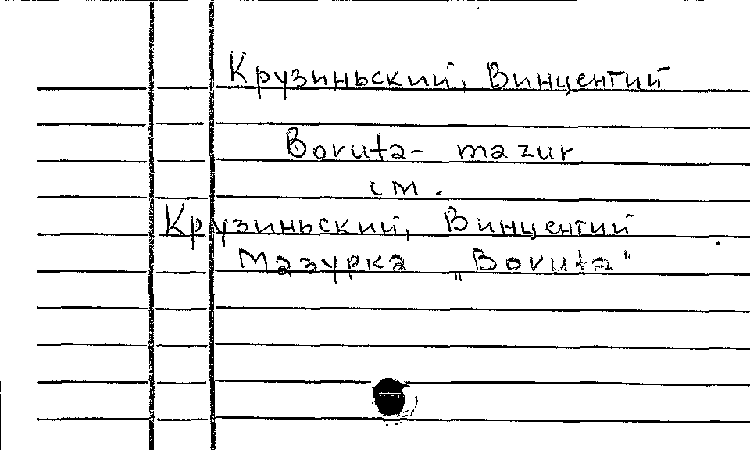 Крузиньский, Винцентий
Boruta- mazur
см.
Крузиньский, Винцентий
Мазурка „Boruta"